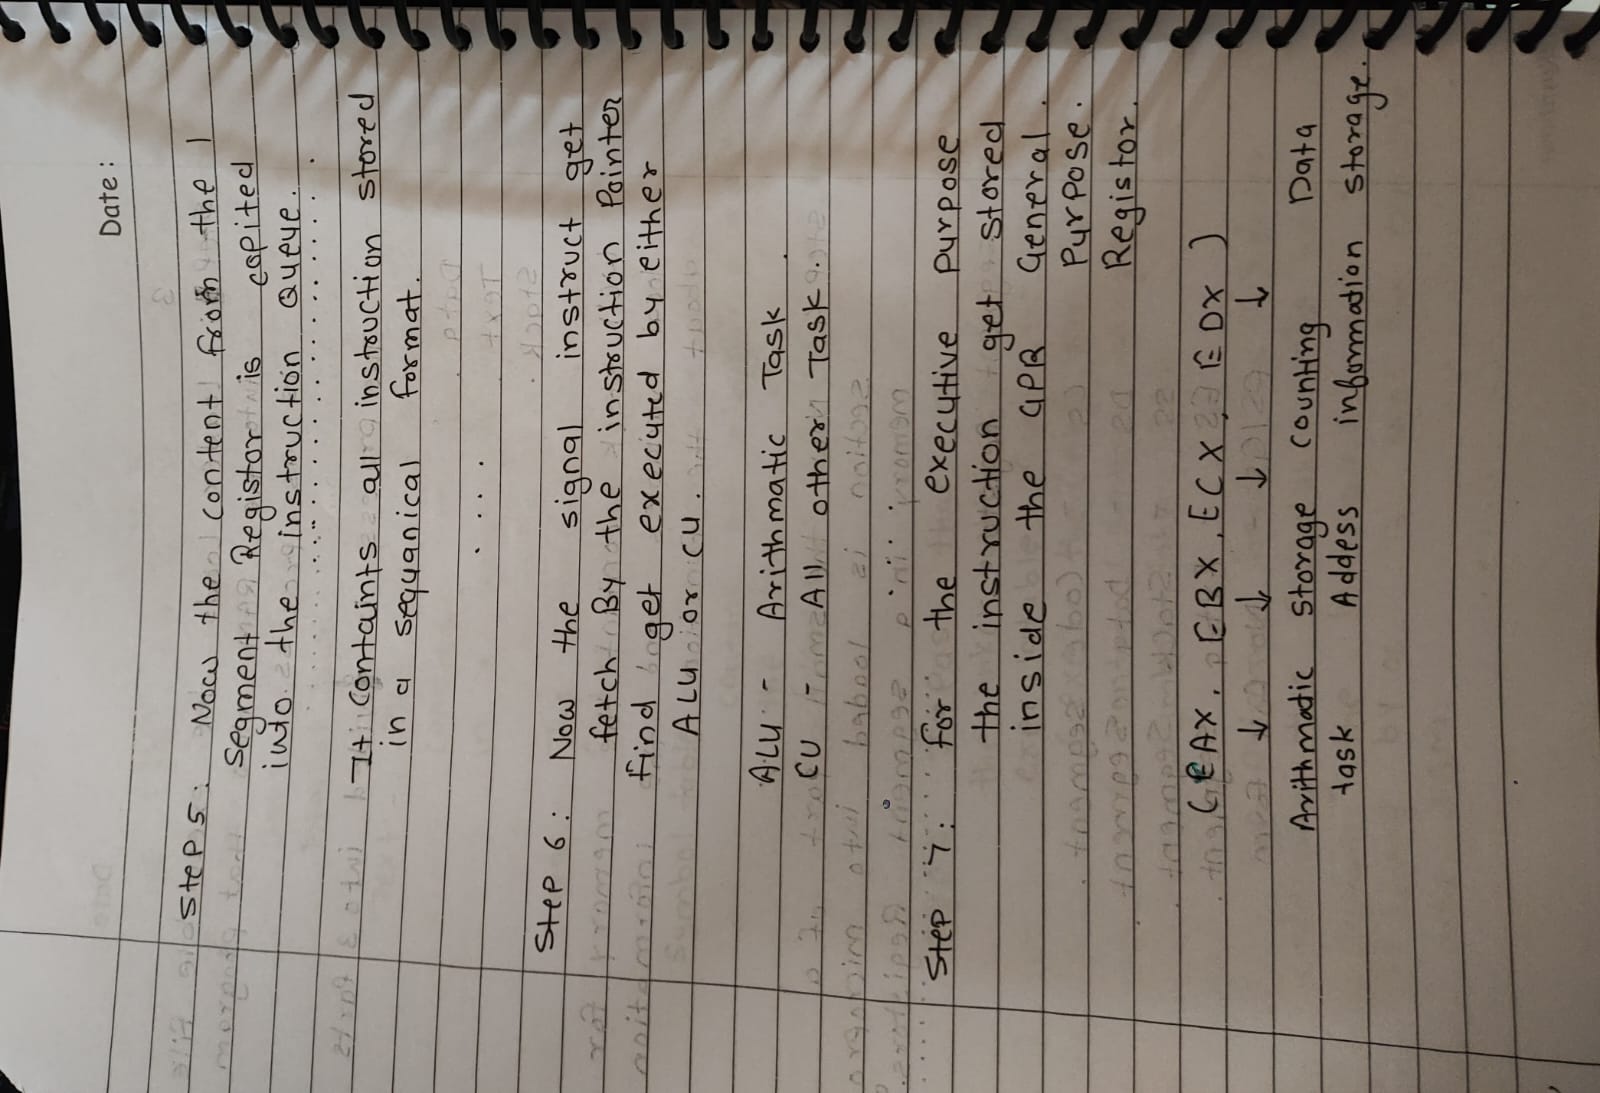 Date:
Step 5: Now the content from the
Segment Registor is copited
into the instruction Queue.
It Containts all instruction stored
in a sequanical format.
Step 6: Now the signal instruct get
fetch By the instruction Pointer
find get executed by either
ALU or CU.
ALU - Arithmatic Task
CU - All other Task.
Step 7: For the executive purpose
the instruction get stored
inside the GPR General.
Purpose.
Registor.
(EAX, EBX, ECX, EDX)
↓ ↓ ↓ ↓
Arithmatic Storage Counting Data
task Addess information storage.